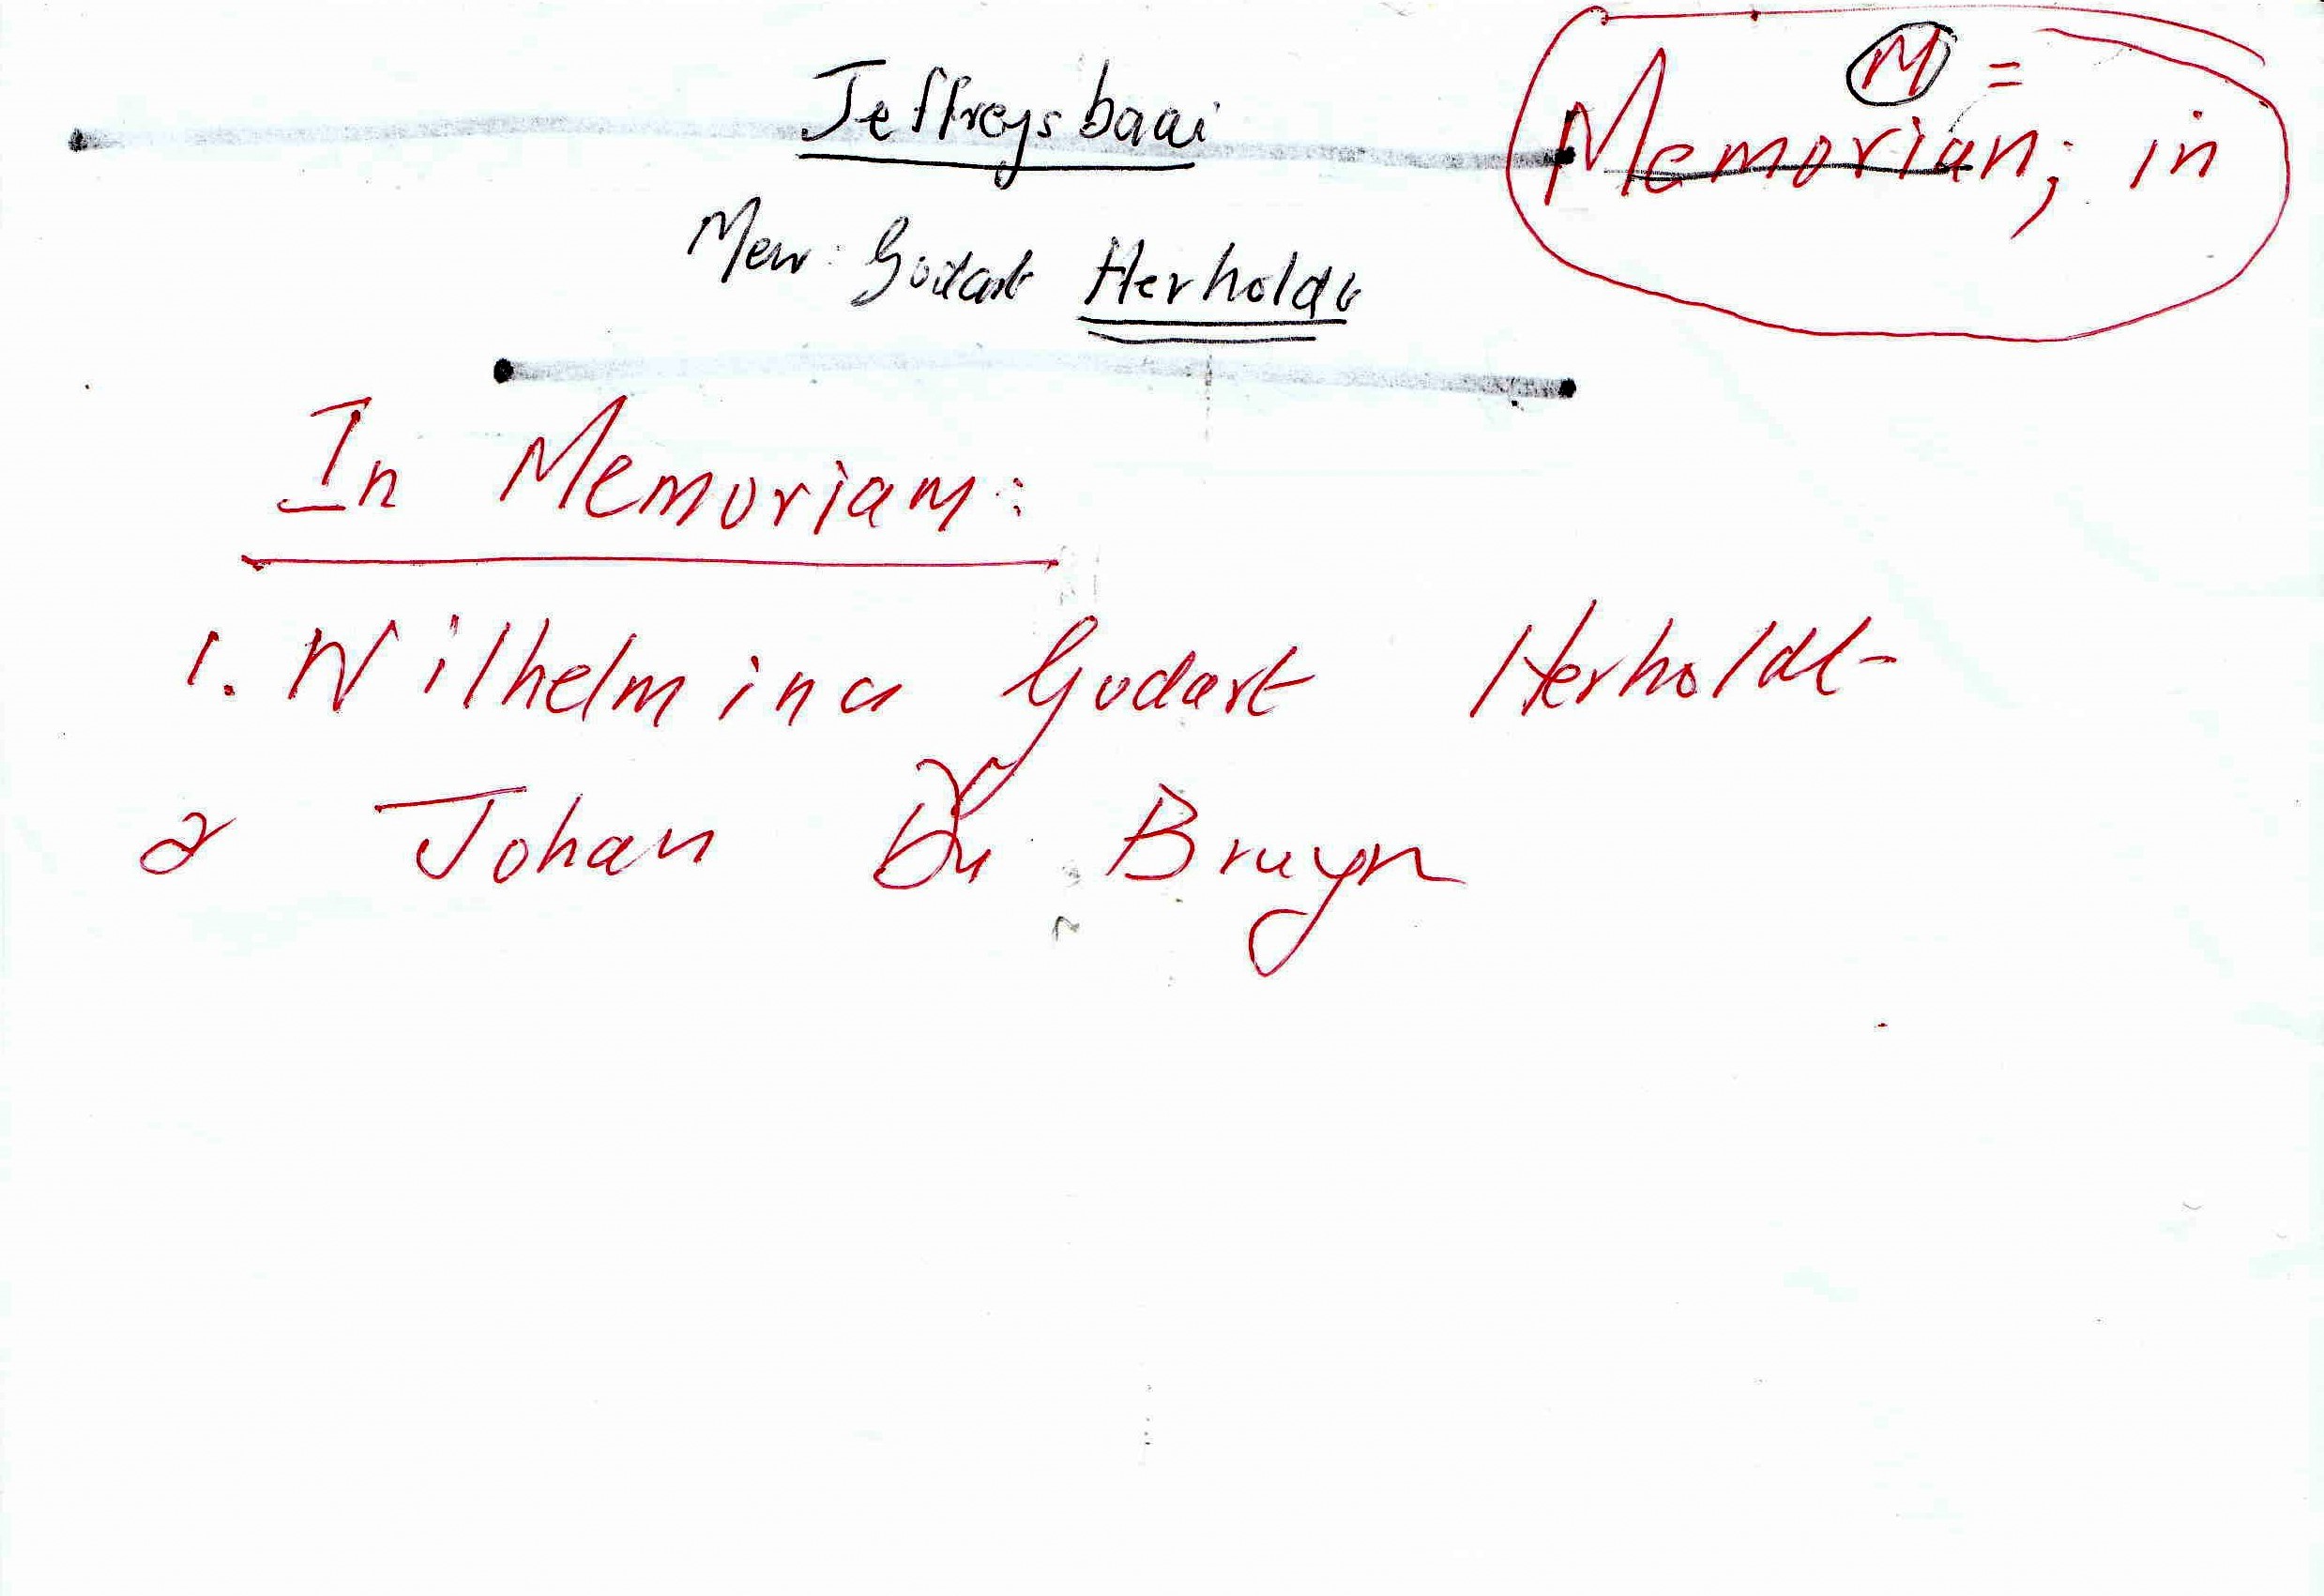 Jeffreysbaai
M =
Memorian; in
Mev: Godart Herholdt
In Memoriam:
1. Wilhelmina Godart Herholdt
2 Johan Du Bruyn